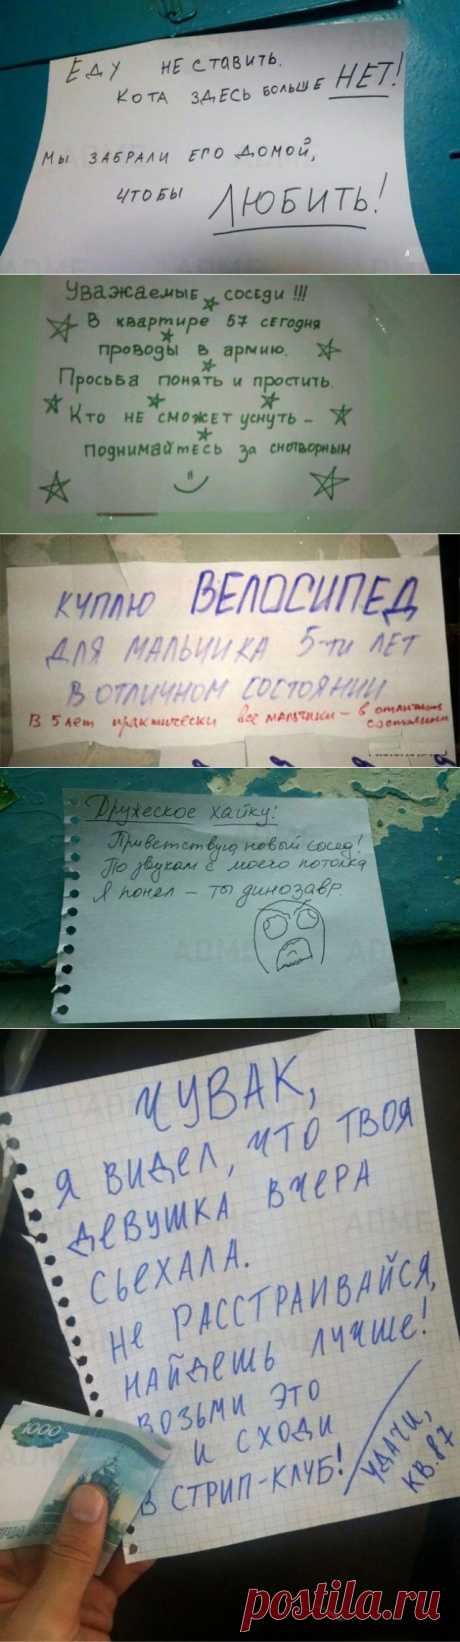 ЕДУ НЕ СТАВИТЬ.
КОТА ЗДЕСЬ БОЛЬШЕ НЕТ!
МЫ ЗАБРАЛИ ЕГО ДОМОЙ,
ЧТОБЫ ЛЮБИТЬ!
Уважаемые соседи!!!
В квартире 57 сегодня
проводы в армию.
Просьба понять и простить.
Кто не сможет уснуть –
поднимайтесь за снотворным
КУПЛЮ ВЕЛОСИПЕД
ДЛЯ МАЛЬЧИКА 5-ти ЛЕТ
В ОТЛИЧНОМ СОСТОЯНИИ
В 5 лет практически все мальчики – в отличном
состоянии
Дружеское хайку:
Приветствую новый сосед!
По звукам с моего потолка
Я понел – ты динозавр.
ADME
ЧУВАК,
Я ВИДЕЛ, ЧТО ТВОЯ
ДЕВУШКА ВЧЕРА
СЬЕХАЛА.
НЕ РАССТРАИВАЙСЯ,
НАЙДЕШЬ ЛУЧШЕ!
ВОЗЬМИ ЭТО
И СХОДИ
В СТРИП-КЛУБ!
УДАЧИ,
КВ. 87
1000
postila.ru